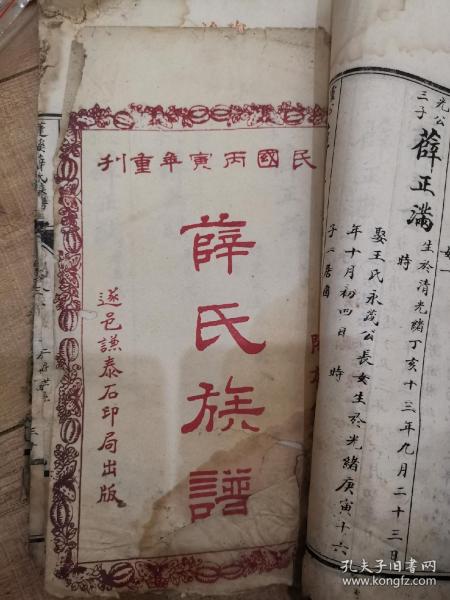 民國丙寅年重刊
薛氏族譜
遂邑謙泰石印局出版
光公
三子
薛正滿
生於清光緒丁亥十三年九月二十三日
時
娶王氏永茂公長女生於光緒庚寅十六
年十月初四日 時
孔夫子旧书网
www.kongfz.com